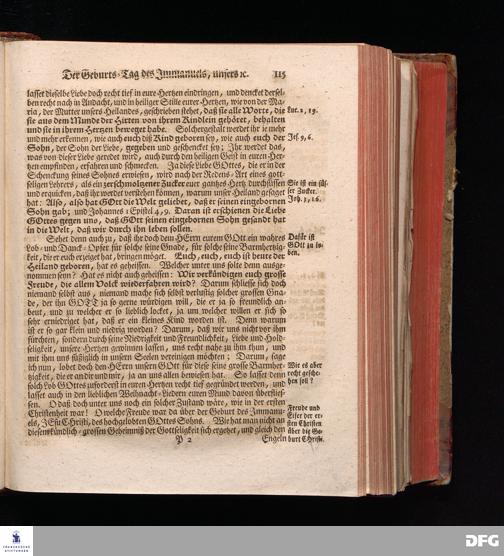 Der Geburts-Tag des Immanuels, unsers ꝛc. 115
lasset dieselbe Liebe doch recht tief in eure Hertzen eindringen, und dencket dersel-
ben recht nach in Andacht, und in heiliger Stille eurer Hertzen, wie von der Ma-
ria, der Mutter unsers Heilandes, geschrieben stehet, daß sie alle Worte, die
sie aus dem Munde der Hirten von ihrem Kindlein gehöret, behalten
und sie in ihrem Hertzen beweget habe. Solchergestalt werdet ihr ie mehr
und mehr erkennen, wie auch euch diß Kind geboren sey, wie auch euch der
Sohn, der Sohn der Liebe, gegeben und geschencket sey; Ihr werdet das,
was von dieser Liebe geredet wird, auch durch den heiligen Geist in euren Her-
tzen empfinden, erfahren und schmecken. Ja diese Liebe GOttes, die er in der
Schenckung seines Sohnes erwiesen, wird nach der Redens-Art eines gott-
seligen Lehrers, als ein zerschmoltzener Zucker euer gantzes Hertz durchsüssen
und erquicken, daß ihr werdet verstehen können, warum unser Heiland gesaget
hat: Also, also hat GOtt die Welt geliebet, daß er seinen eingebornen
Sohn gab; und Johannes 1 Epistel 4, 9. Daran ist erschienen die Liebe
GOttes gegen uns, daß GOtt seinen eingebornen Sohn gesandt hat
in die Welt, daß wir durch ihn leben sollen.
Sehet denn auch zu, daß ihr doch dem HErrn eurem GOtt ein wahres
Lob- und Danck-Opfer für solche seine Gnade, für solche seine Barmhertzig-
keit, die er euch erzeiget hat, bringen möget. Euch, euch, euch ist heute der
Heiland geboren, hat es geheissen. Welcher unter uns solte denn ausge-
nommen seyn? Hat es nicht auch geheissen: Wir verkündigen euch grosse
Freude, die allem Volck wiederfahren wird? Darum schliesse sich doch
niemand selbst aus, niemand mache sich selbst verlustig solcher grossen Gna-
de, der ihn GOTT ja so gerne würdigen will, die er ja so freundlich an-
beut, und zu welcher er so lieblich locket, ja um welcher willen er sich so
sehr erniedriget hat, daß er ein kleines Kind worden ist. Denn warum
ist er so gar klein und niedrig worden? Darum, daß wir uns nicht vor ihm
fürchten, sondern durch seine Niedrigkeit und Freundlichkeit, Liebe und Hold-
seligkeit, unsere Hertzen gewinnen lassen, uns recht nahe zu ihm thun, und
mit ihm uns süßiglich in unsern Seelen vereinigen möchten; Darum, sage
ich nun, lobet doch den HErrn unsern GOtt für diese seine grosse Barmher-
tzigkeit, die er an dir und mir, ja an uns allen bewiesen hat. So lasset denn
solch Lob GOttes zuförderst in euren Hertzen recht tief gegründet werden, und
lasset auch in den lieblichen Weihnacht-Liedern euren Mund davon überflies-
sen. O daß doch unter uns noch ein solcher Zustand wäre, wie in der ersten
Christenheit war! O welche Freude war da über der Geburt des Immanu-
els, JEsu Christi, des hochgelobten GOttes Sohns. Wie hat man nicht an
diesem kündlich-grossen Geheimniß der Gottseligkeit sich ergetzet, und gleich den
P 2 Engeln
Luc. 1, 19.
Jes. 9, 6.
Sie ist ein süs-
ser Zucker.
Joh. 3, 16.
Dafür ist
GOtt zu lo-
ben.
Wie es aber
recht gesche-
hen soll?
Freude und
Eifer der er-
sten Christen
über die Ge-
burt Christi.
FRANCKESCHE
STIFTUNGEN
DFG